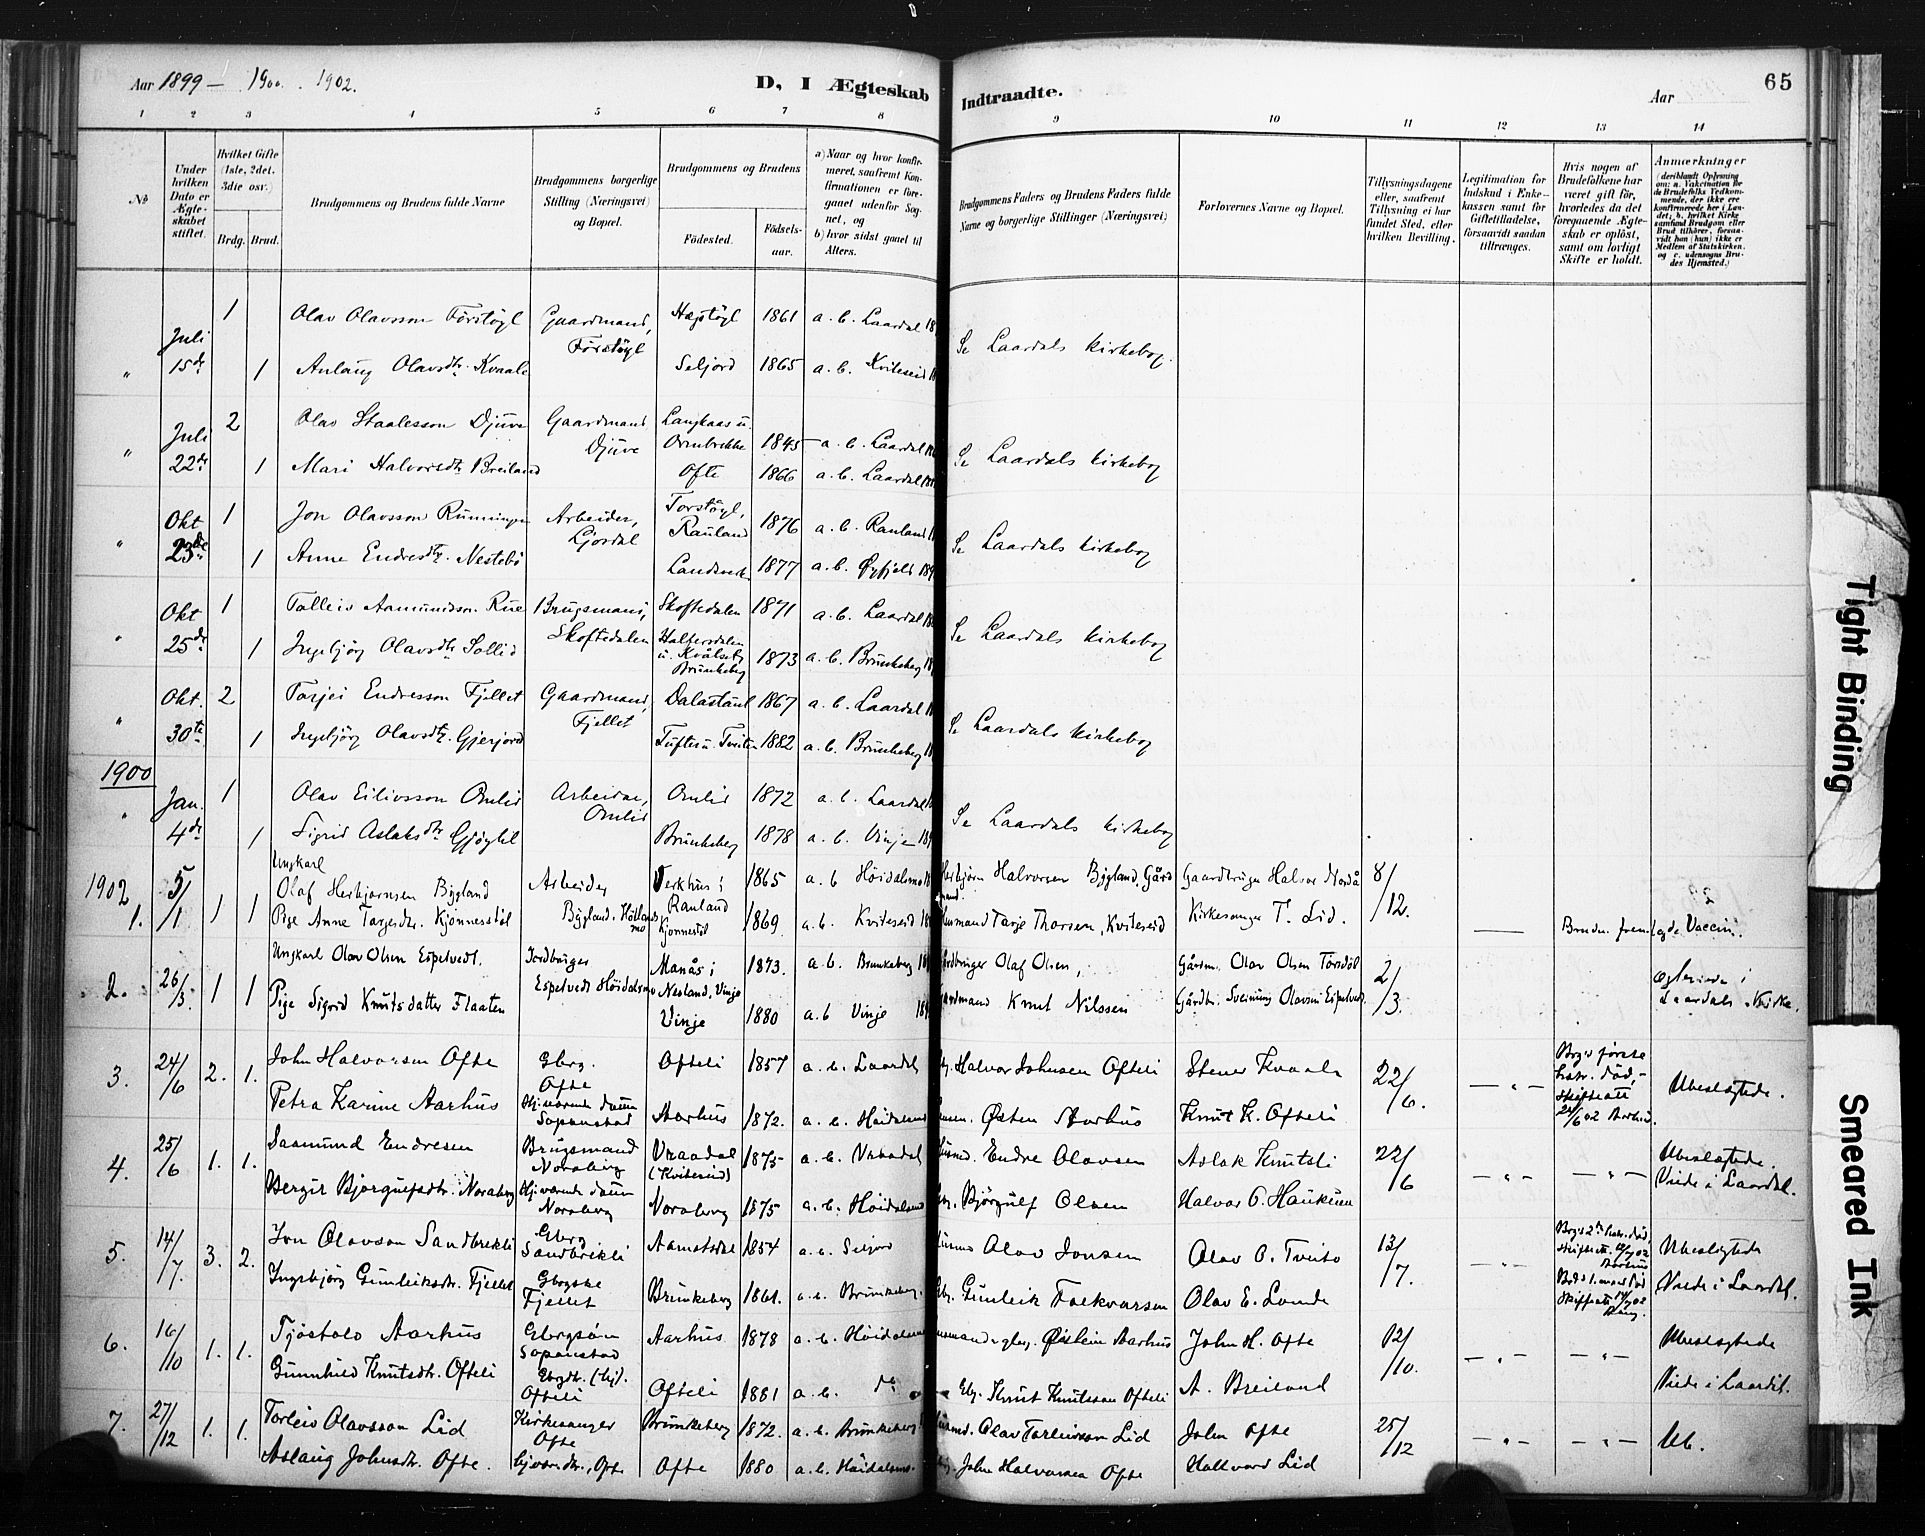 Aar 1899 — 1900. 1902.
D, I Ægteskab Indtraadte.
Aar
65
1 2 3 4 5 6 7 8 9 10 11 12 13 14
No
Under hvilken Dato er Ægteskabet stiftet.
Hvilket Gifte (1ste, 2det, 3die osv.)
Brdg. Brud.
Brudgommens og Brudens fulde Navne
Brudgommens borgerlige Stilling (Næringsvei) og Bopæl.
Brudgommens og Brudens
Fødested.
Fødselsaar.
a) Naar og hvor konfirmeret, saafremt Konfirmationen er foregaaet udenfor Sognet, og
b) hvor sidst gaaet til Alters.
Brudgommens Faders og Brudens Faders fulde Navne og borgerlige Stillinger (Næringsvei)
Forlovernes Navne og Bopæl.
Tillysningsdagene eller, saafremt Tillysning ei har fundet Sted, efter hvilken Bevilling.
Legitimation for Indskud i Enkekassen samt for Giftetilladelse, forsaavidt saadan tiltrænges.
Hvis nogen af Brudefolkene har været gift før, hvorledes da det foregaaende Ægteskab er opløst, samt om lovligt Skifte er holdt.
Anmærkninger (deriblandt Oplysning om: a. Vakcination for de Brudefolks Vedkommende, der ikke ere konfirmerede her i Landet; b. hvilket Kirkesamfund Brudgom eller Brud tilhører, forsaavidt han (hun) ikke er Medlem af Statskirken, og c. udensogns Brudes Hjemsted.)
" Juli 15de 1 Olav Olavsson Førstøyl Gaardmand, Førstøyl Hægstøyl 1861 a. b. Laardal Se Laardals kirkebog.
1 Anlaug Olavsdtr. Kvaale Seljord 1865 a. b. Kviteseid
" Juli 22de 2 Olav Staalesson Djuve Gaardmand Djuve Langkaas u. Ormbrekke 1845 a. b. Laardal Se Laardals kirkebog
1 Mari Halvorsdtr Breiland Ofte 1866 a. b. Laardal
" Okt 23de 1 Jon Olavsson Runningen Arbeider, Ljosdal Torstøyl, Rauland 1876 a. b. Rauland Se Laardals kirkebog
1 Anne Endresdtr. Nestebø Landsverk 1877 a. b. Øyfjeld
" Okt 25de 1 Tolleiv Aamundsson Rue Brugsmand, Skoftedalen Skoftedalen 1871 a. b. Laardal Se Laardals kirkebog
1 Ingebjørg Olavsdtr Sollid u. Brunkeberg 1873 a. b. Brunkeberg
" Okt. 30te 2 Tarjei Endresson Fjellet Gaardmand, Fjellet Dalastaul 1867 a. b. Laardal Se Laardals kirkebog
1 Ingebjørg Olavsdtr. Gjerjord Tufte u. Tveiten 1882 a. b. Brunkeberg
1900
" Jan. 4de 1 Olav Eilivsson Omlid Arbeidar, Omlid Omlid 1872 a. b. Laardal Se Laardals kirkebog
1 Sigrid Aslaksdtr Gjøykil Brunkeberg 1878 a. b. Vinje
1902
1. 5/1 1 1 Ungkarl Olaf Herbjørnsen Bygland Arbeider Bygland, Høidalsmo Verkhus i Rauland 1865 a. b Høidalsmo Herbjørn Halvorsen Bygland, Gårdmand. Gaardbruger Halvor Nordå 8/12.
Pige Anne Targesdtr. Kjønnestøl Kjonnestøl 1869 a. b. Kviteseid Husmand Tarje Thorsen, Kviteseid Kirkesanger T. Lid. — Bruden fremlagde Vaccin.
2. 26/3 1 1 Ungkarl Olav Olsen Espetvedt. Jordbruger Espetvedt Høidalsmo Manås i Nesland, Vinje 1873. a. b. Brunkeberg Gårdbruger Olaf Olsen, Gårdm. Olav Olsen Torsdøl 2/3.
Pige Sigrid Knutsdatter Flaaten Vinje 1880 a. b Vinje Gaardmand Knut Nilssen Gårdbr. Sveinung Olavsen Espetvedt Laardals Kirke.
3. 24/6 2. 1. John Halvorsen Ofte Gbrg. Ofte Ofteli 1857 a. b. Laardal Halvor Johnsen Ofteli Stener Kvaale 22/6. — " — Brgs første hstr. død, — Skifteatt 24/6 02 Ubeslægtede.
Petra Karine Aarhus Hjemmværende datter Sopanstad Aarhus 1872. a. b. Høidalsmo Østen Aarhus Knut K. Ofteli
4. 25/6 1. 1. Saamund Endresen Brugsmand Noraberg Vraadal (Kviteseid) 1875 a. b. Vraadal Endre Olavsen Aslak Knutsli 22/6 — " — — " — Ubeslægtede. Viede i Laardal.
Bergit Bjørgulfsdtr. Noraberg Hjemværende datter Noraberg Noraberg 1875 a. b. Høidalsmo Bjørgulf Olsen Halvor O. Haukum
5. 14/7 3. 2. Jon Olavson Sandbrekli Gbrg Sandbrekli Aamotsdal 1854 a. b. Seljord Olav Jonsen Olav O. Tveito 13/7. — " — Brgs 2den hstr. død, Skifteatt. Ubeslegtede
Ingebjørg Gunleiksdtr. Fjellet Gbrgske Fjellet Brunkeberg 1861. a. b. Brunkeberg. Gunleik Folkvarson Olav E. Lunde Bruds 1. mand død Skifteatt Viede i Laardal.
6. 16/10 1. 1. Tjøstolv Aarhus Gbrgsøn Sopanstad Aarhus 1878 a. b. Høidalsmo Øistein Aarhus John H. Ofte 12/10. — " — — " — Ubeslegtede
Gunnhild Knutsdtr. Ofteli Gbrgdtr. (hj). Ofteli Ofteli 1881 a. b. do Gbg. Knut Knutsson Ofteli A. Breiland Viede i Laardal.
7. 27/12 1. 1. Torleiv Olavsson Lid Kirkesanger Ofte Brunkeberg 1872. a. b. Brunkeberg Olav Torleivson Lid John Ofte 25/12 — " — — " — Ub.
Aslaug Johnsdtr. Ofte. hjvær. dtr., Ofte Ofte 1880 a. b. Høidalsmo. John Halvorsen Ofte Hallvard Lid
Tight Binding
Smeared Ink